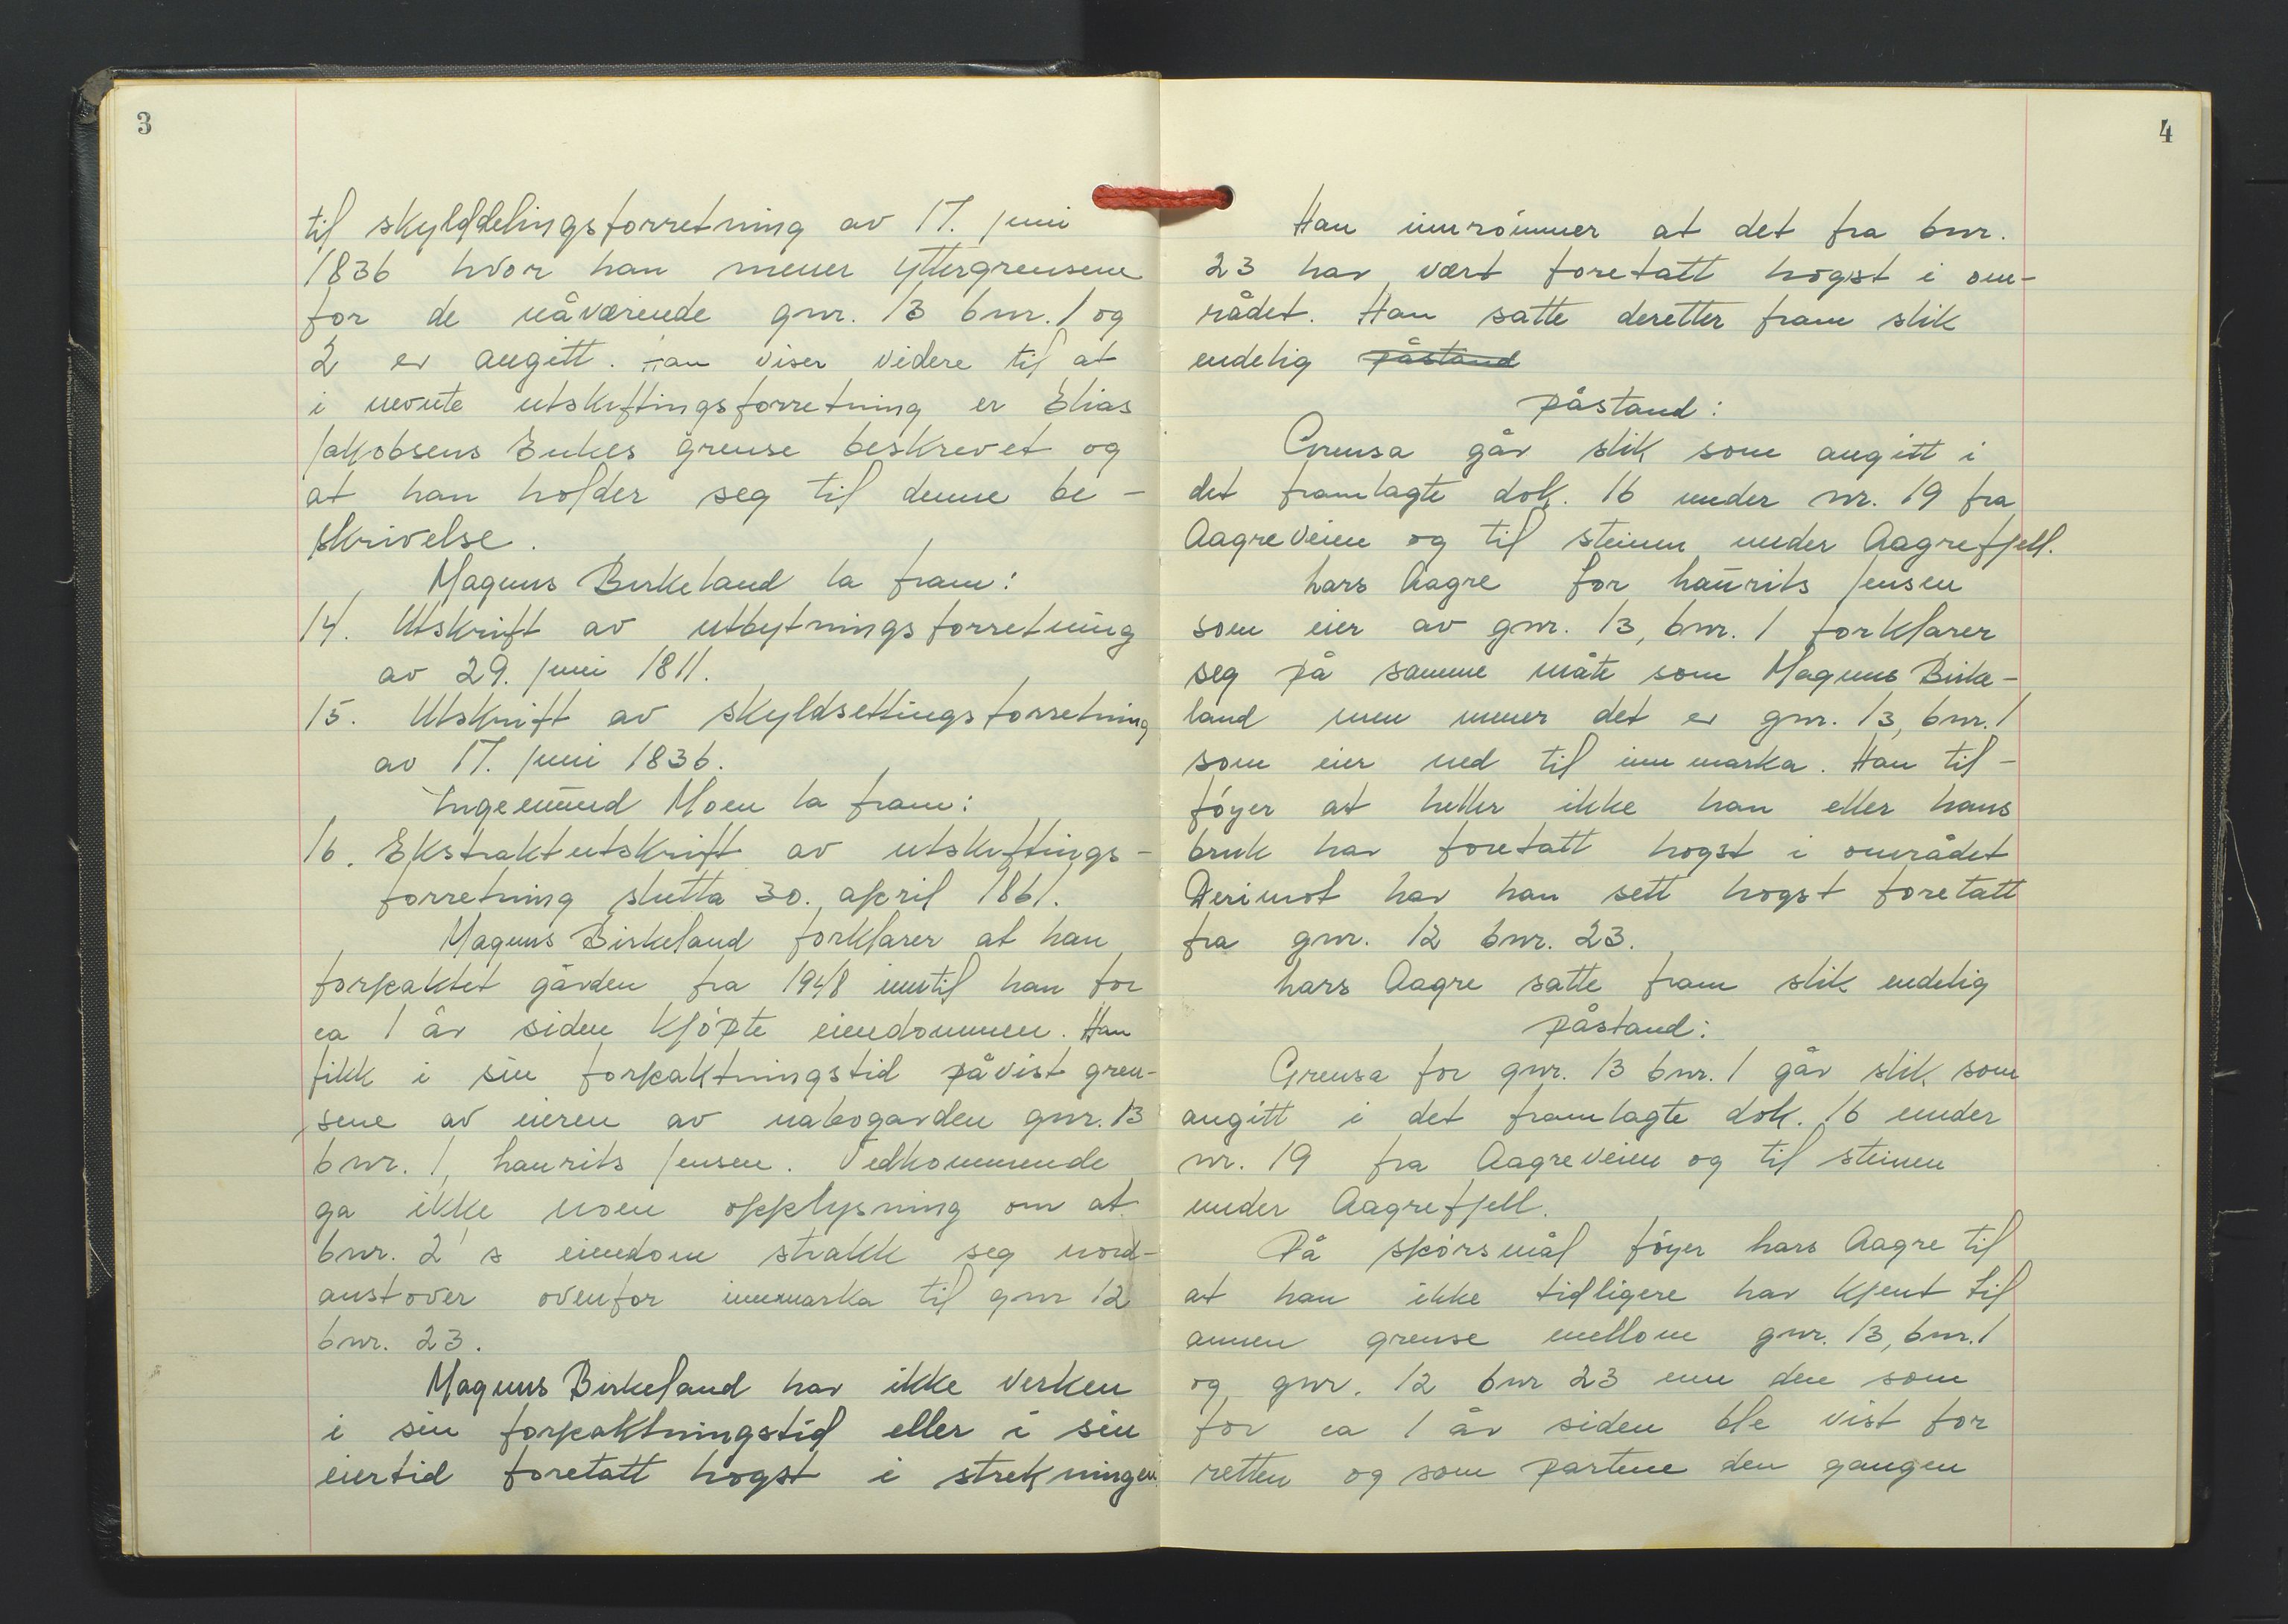 3
til skylddelingsforretning av 17. juni
1836 hvor han mener yttergrensene
for de nåværende gnr. 13 bnr. 1 og
2 er angitt. Han viser videre til at
i nevnte utskiftingsforretning er Elias
Jakobsens Enkes grense beskrevet og
at han holder seg til denne be-
skrivelse.
Magnus Birkeland la fram:
14. Utskrift av utbytningsforretning
av 29. juni 1811.
15. Utskrift av skyldsettingsforretning
av 17. juni 1836.
Ingemund Moen la fram:
16. Ekstraktutskrift av utskiftings-
forretning slutta 30. april 1861.
Magnus Birkeland forklarer at han
forpaktet gården fra 1948 inntil han for
ca 1 år siden kjøpte eiendommen. Han
fikk i sin forpaktningstid påvist gren-
sene av eieren av nabogarden gnr. 13
bnr. 1, Laurits Jensen. Vedkommende
ga ikke noen opplysning om at
bnr. 2's eiendom strakk seg nord-
austover ovenfor innmarka til gnr 12
bnr. 23.
Magnus Birkeland har ikke verken
i sin forpaktningstid eller i sin
eiertid foretatt hogst i strekningen.
4
Han innrømmer at det fra bnr.
23 har vært foretatt hogst i om-
rådet. Han satte deretter fram slik
endelig påstand
påstand:
Grensa går slik som angitt i
det framlagte dok. 16 under nr. 19 fra
Aagreveien og til steinen under Aagrefjell.
Lars Aagre for Laurits Jensen
som eier av gnr. 13, bnr. 1 forklarer
seg på samme måte som Magnus Birke-
land men mener det er gnr. 13, bnr. 1
som eier ned til innmarka. Han til-
føyer at heller ikke han eller hans
bruk har foretatt hogst i området
Derimot har han sett hogst foretatt
fra gnr. 12 bnr. 23.
Lars Aagre satte fram slik endelig
påstand:
Grensa for gnr. 13 bnr. 1 går slik som
angitt i det framlagte dok. 16 under
nr. 19 fra Aagreveien og til steinen
under Aagrefjell.
På spørsmål føyer Lars Aagre til
at han ikke tidligere har kjent til
annen grense mellom gnr. 13, bnr. 1
og gnr. 12 bnr 23 enn den som
for ca 1 år siden ble vist for
retten og som partene den gangen